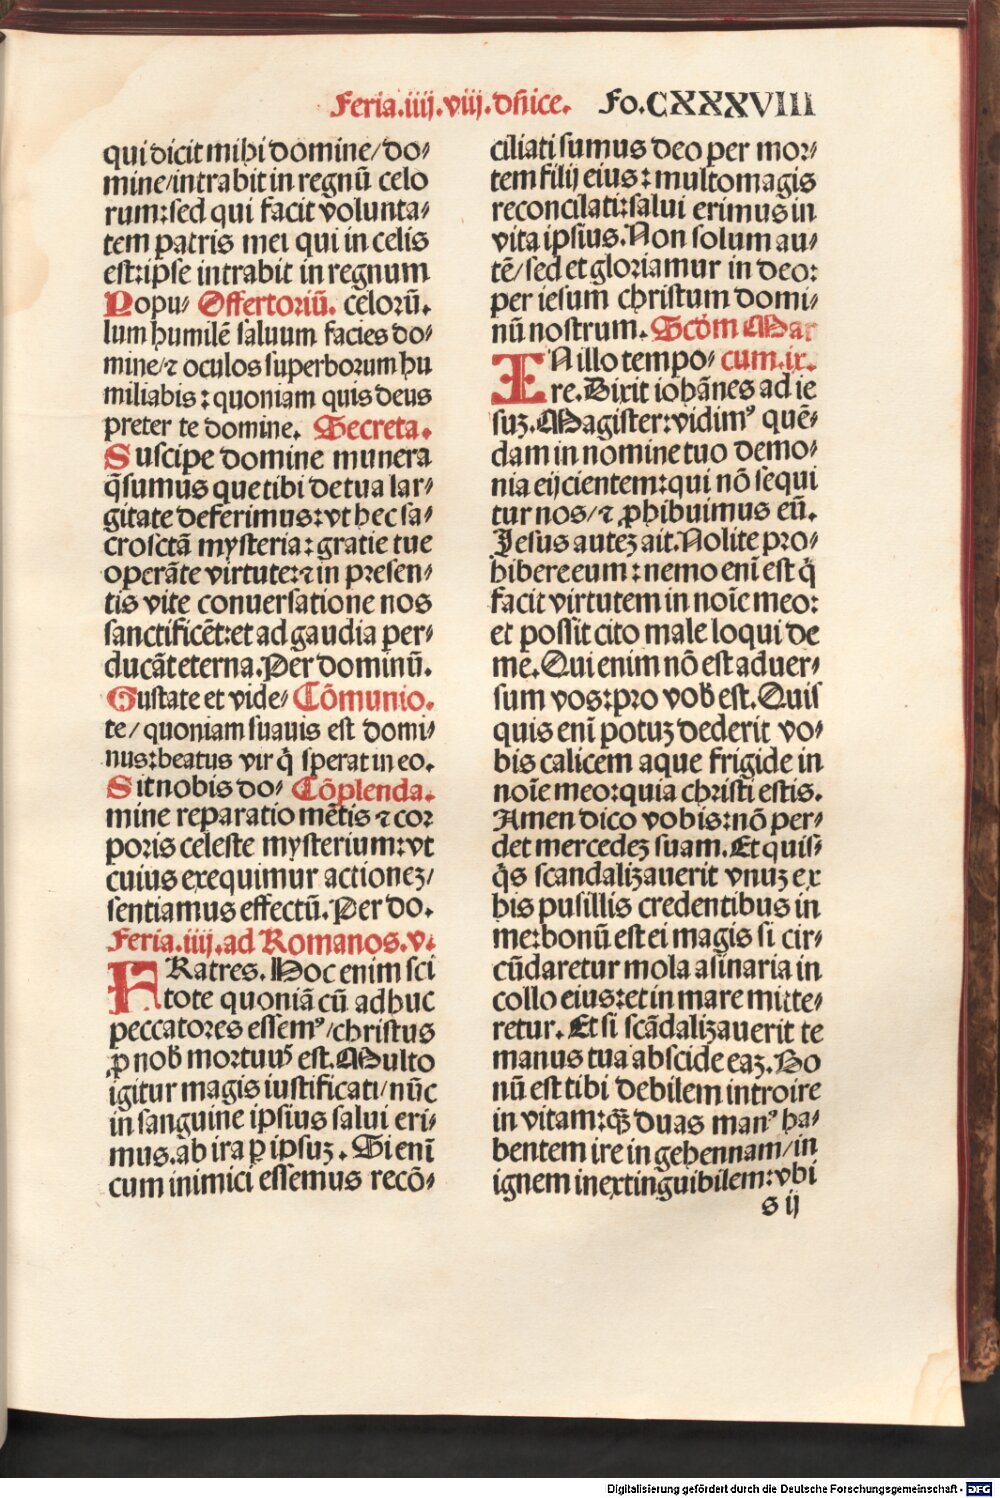 Feria.iiij.viij.dñice. Fo.CXXXVIII
qui dicit mihi domine/do⸗
mine/intrabit in regnū celo
rum:sed qui facit volunta⸗
tem patris mei qui in celis
est:ipse intrabit in regnum
Popu⸗ Offertoriū. celorū.
lum humilē saluum facies do⸗
mine/⁊ oculos superborum hu
miliabis:quoniam quis deus
preter te domine. Secreta.
Suscipe domine munera
q̄sumus que tibi de tua lar⸗
gitate deferimus:vt hec sa⸗
crosctā mysteria:gratie tue
operāte virtute:⁊ in presen⸗
tis vite conuersatione nos
sanctificēt:et ad gaudia per⸗
ducāt eterna.Per dominū.
Gustate et vide⸗ Cōmunio.
te/quoniam suauis est domi⸗
nus:beatus vir q̄ sperat in eo.
Sit nobis do⸗ Cōplenda.
mine reparatio mētis ⁊ cor
poris celeste mysterium:vt
cuius exequimur actionez/
sentiamus effectū.Per do.
Feria.iiij.ad Romanos.v.
FRatres. Hoc enim sci
tote quoniā cū adhuc
peccatores essemꝰ/christus
ꝓ nob̄ mortuus est.Multo
igitur magis iustificati/nūc
in sanguine ipsius salui eri⸗
mus.ab ira ꝑ ipsuz. Si enī
cum inimici essemus recō⸗
ciliati sumus deo per mor⸗
tem filij eius:multomagis
reconcilati:salui erimus in
vita ipsius.Non solum au⸗
tē/sed et gloriamur in deo:
per iesum christum domi⸗
nū nostrum. Scd̄m Mar
IN illo tempo⸗ cum.ix.
re.Dixit iohānes ad ie
suz.Magister:vidimꝰ quē⸗
dam in nomine tuo demo⸗
nia eijcientem:qui nō sequi
tur nos/⁊ ꝓhibuimus eū.
Jesus autez ait.Nolite pro⸗
hibere eum:nemo enī est q̄
facit virtutem in noīe meo:
et possit cito male loqui de
me.Qui enim nō est aduer⸗
sum vos:pro vob̄ est.Quis
quis enī potuz dederit vo⸗
bis calicem aque frigide in
noīe meo:quia christi estis.
Amen dico vobis:nō per⸗
det mercedez suam.Et quis⸗
q̄s scandalizauerit vnuz ex
his pusillis credentibus in
me:bonū est ei magis si cir⸗
cūdaretur mola asinaria in
collo eius:et in mare mitte⸗
retur. Et si scādalizauerit te
manus tua abscide eaz.Bo
nū est tibi debilem introire
in vitam:q̄ꝫ duas manꝰ ha⸗
bentem ire in gehennam/in
ignem inextinguibilem:vbi
s ij
Digitalisierung gefördert durch die Deutsche Forschungsgemeinschaft - DFG